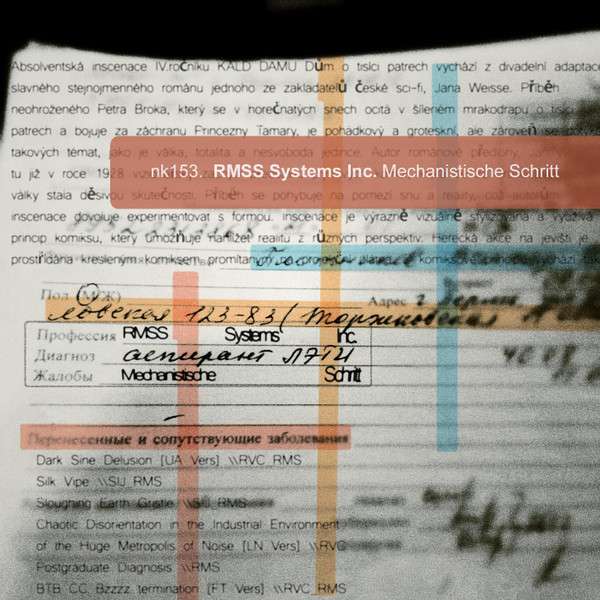 Absolventská inscenace IV.ročníku KALD DAMU Dům o tisíci patrech vychází z divadelní adaptace
slavného stejnojmenného románu jednoho ze zakladatelů české sci-fi, Jana Weisse. Příběh
neohroženého Petra Broka, který se v horečnatých snech ocitá v šíleném mrakodrapu o tisíci
patrech a bojuje za záchranu Princezny Tamary, je pohádkový a groteskní, ale zároveň se dotýká
takových témat, jako je válka, totalita a nesvoboda jedince. Autor románové předlohy,
tu již v roce 1928
nk153.. RMSS Systems Inc. Mechanistische Schritt
války stala děsivou skutečností. Příběh se pohybuje na pomezí snu a reality, což autorům
inscenace dovoluje experimentovat s formou. Inscenace je výrazně vizuálně stylizovaná a využívá
princip komiksu, který umožňuje nahlížet realitu z různých perspektiv. Herecká akce na jevišti je
prostřídána kresleným komiksem, promítaným
Пол (М/Ж)
Адрес г.
ловская 123-83/ Торжковская
Профессия RMSS Systems Inc.
Диагноз аспирант ЛЭТИ
Жалобы Mechanistische Schritt
Перенесенные и сопутствующие заболевания
Dark Sine Delusion [UA Vers] \\RVC_RMS
Silk Vipe \\SIJ_RMS
Sloughing Earth Gristle \\SIJ_RMS
Chaotic Disorientation in the Industrial Environment
of the Huge Metropolis of Noise [LN Vers] \\RVC
Postgraduate Diagnosis \\RMS
BTB CC Bzzzz termination [FT Vers] \\RVC_RMS